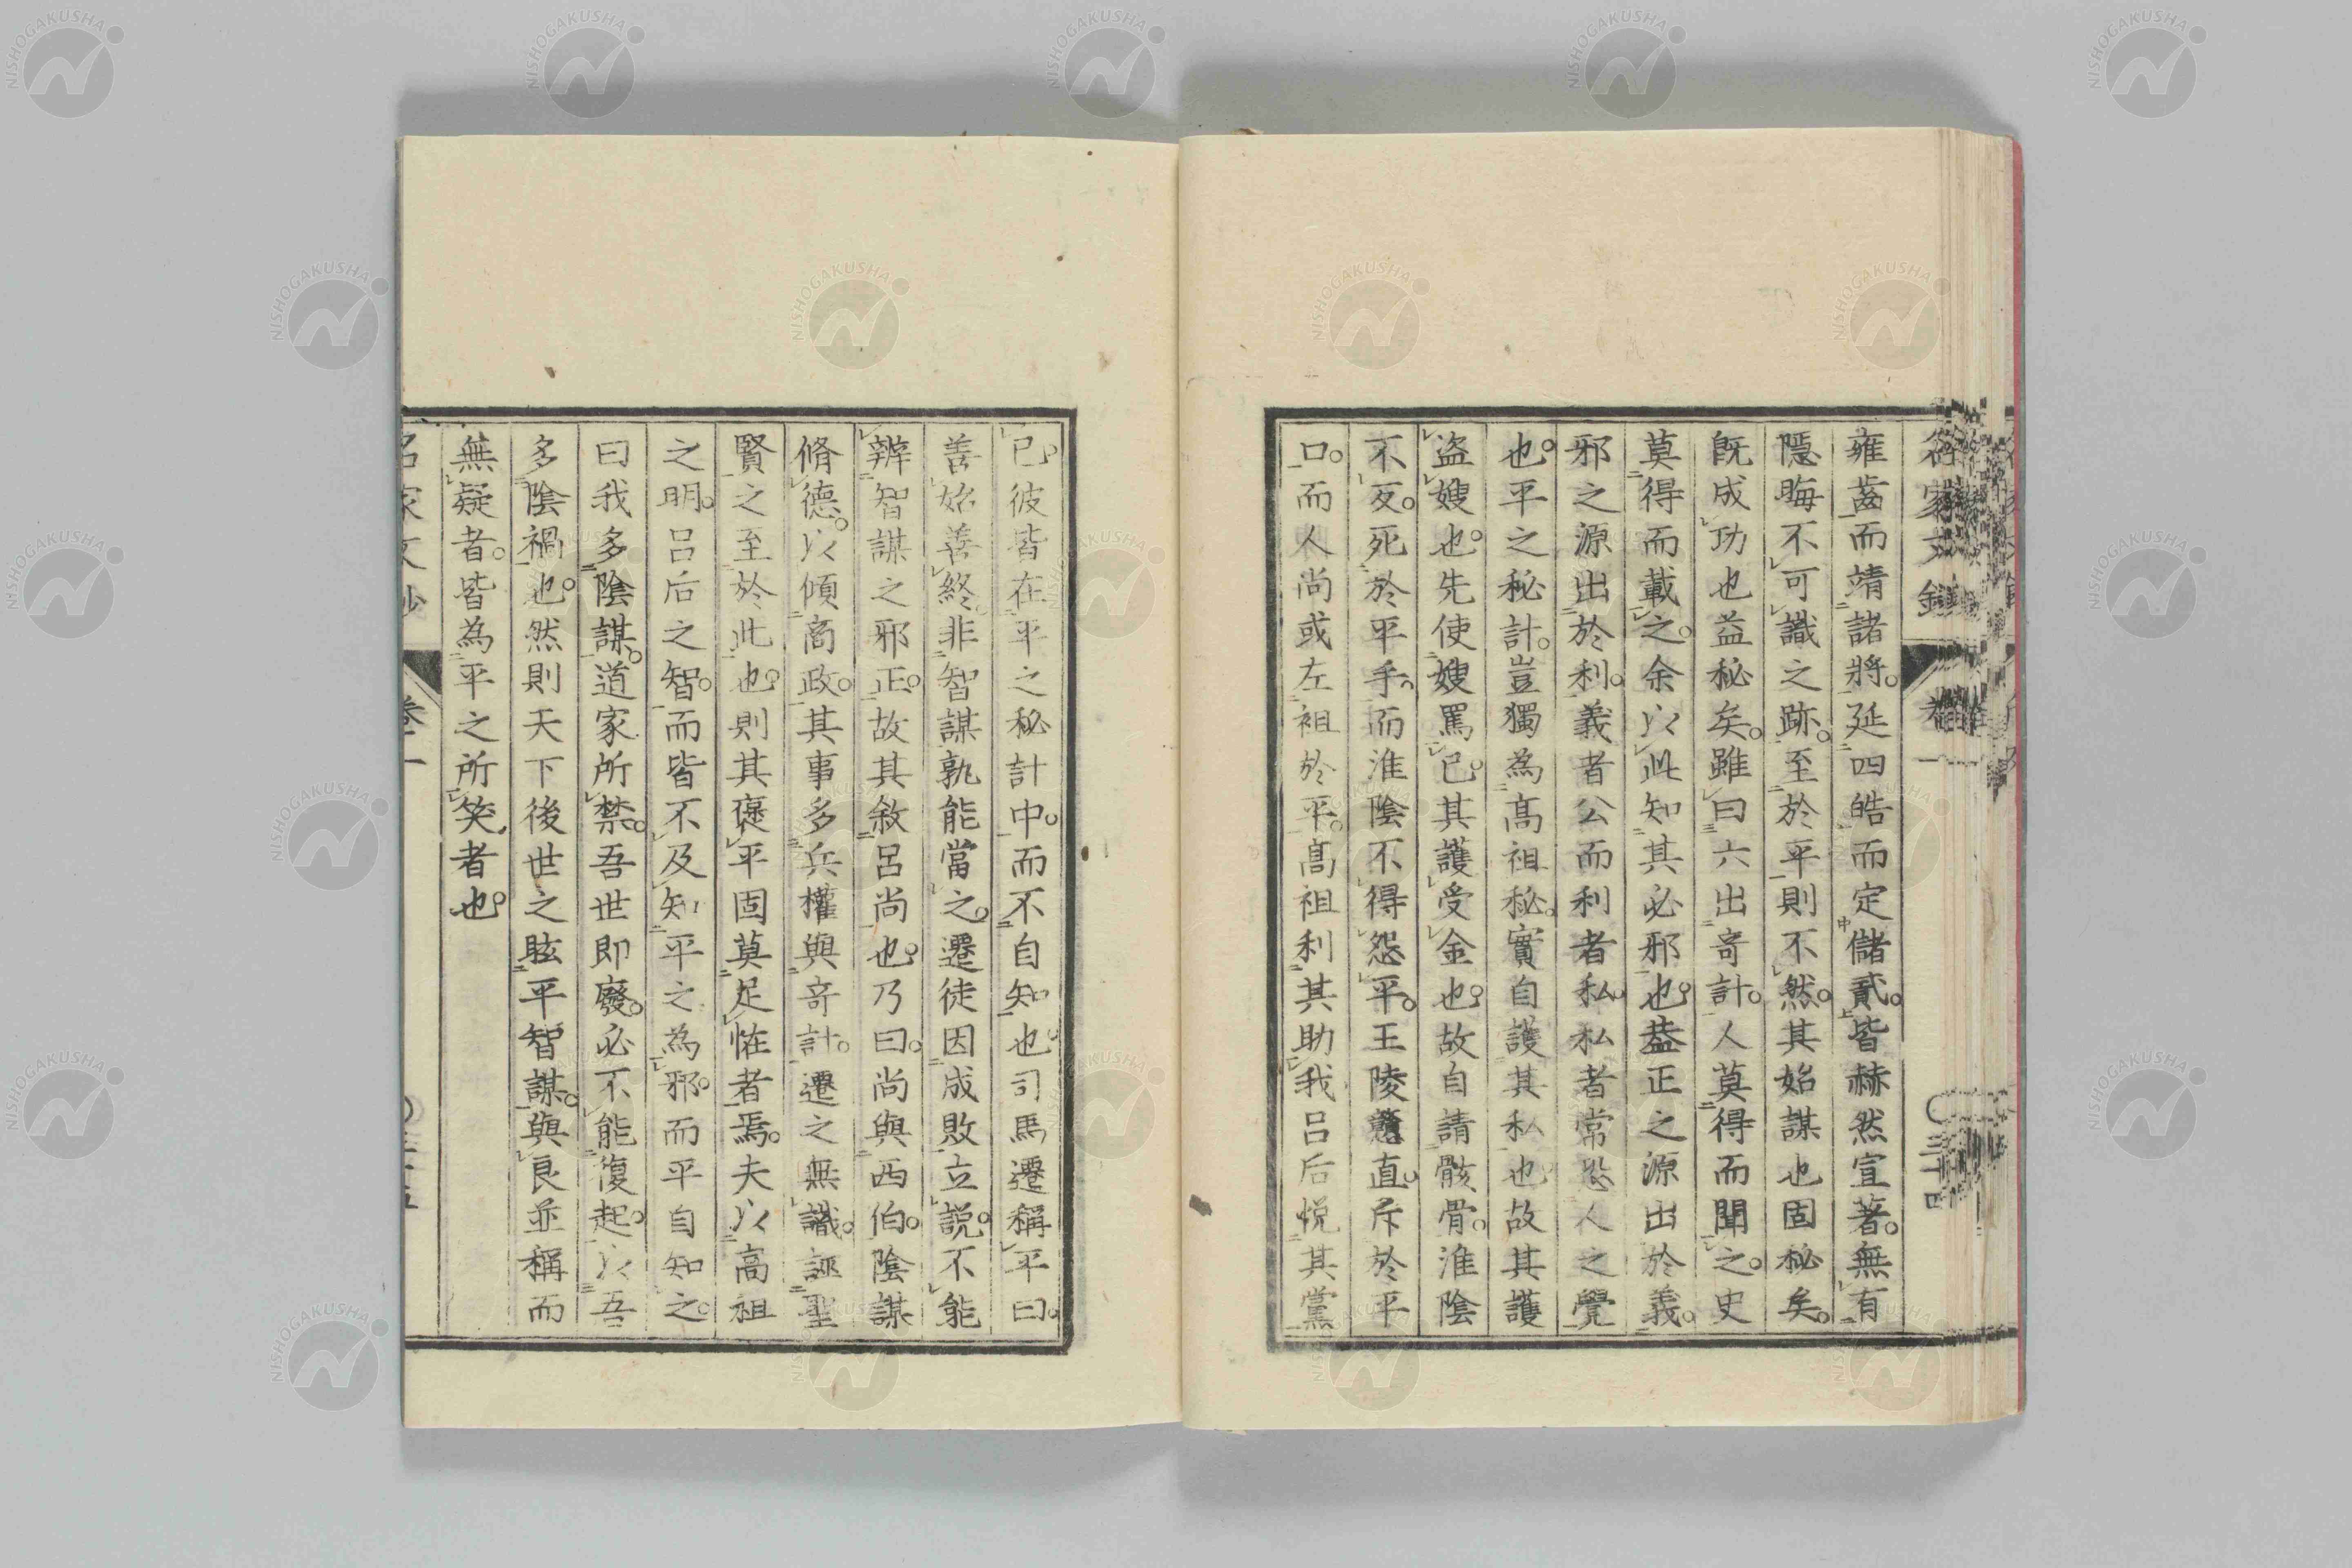 雍齒而靖諸將。延四皓而定儲貳。皆赫然宣著。無有
隱晦不可識之跡。至於平則不然。其始謀也固秘矣。
既成功也益秘矣。雖曰六出奇計。人莫得而聞之。史
莫得而載之。余以此知其必邪也。蓋正之源出於義。
邪之源出於利。義者公而利者私。私者常恐人之覺
也。平之秘計。豈獨為髙祖秘。實自護其私也。故其護
盗嫂也。先使嫂罵已。其護受金也。故自請骸骨。淮陰
不反。死於平手。而淮陰不得怨平。王陵戇直。斥於平
口。而人尚或左袒於平。髙祖利其助我。呂后悅其黨
已。彼皆在平之秘計中。而不自知也。司馬遷稱平曰。
善始善終。非智謀孰能當之。遷徒因成敗立說。不能
辨智謀之邪正。故其敘呂尚也。乃曰。尚與西伯。陰謀
脩德。以傾商政。其事多兵權與奇計。遷之無識。誣聖
賢之至於此也。則其褒平固莫足怪者焉。夫以高祖
之明。呂后之智。而皆不及知平之為邪。而平自知之。
曰我多陰謀。道家所禁。吾世即廢。必不能復起。以吾
多陰禍也。然則天下後世之眩平智謀。與良並稱而
無疑者。皆為平之所笑者也。
名家文鈔
卷一
〇三十四
NISHOGAKUSHA